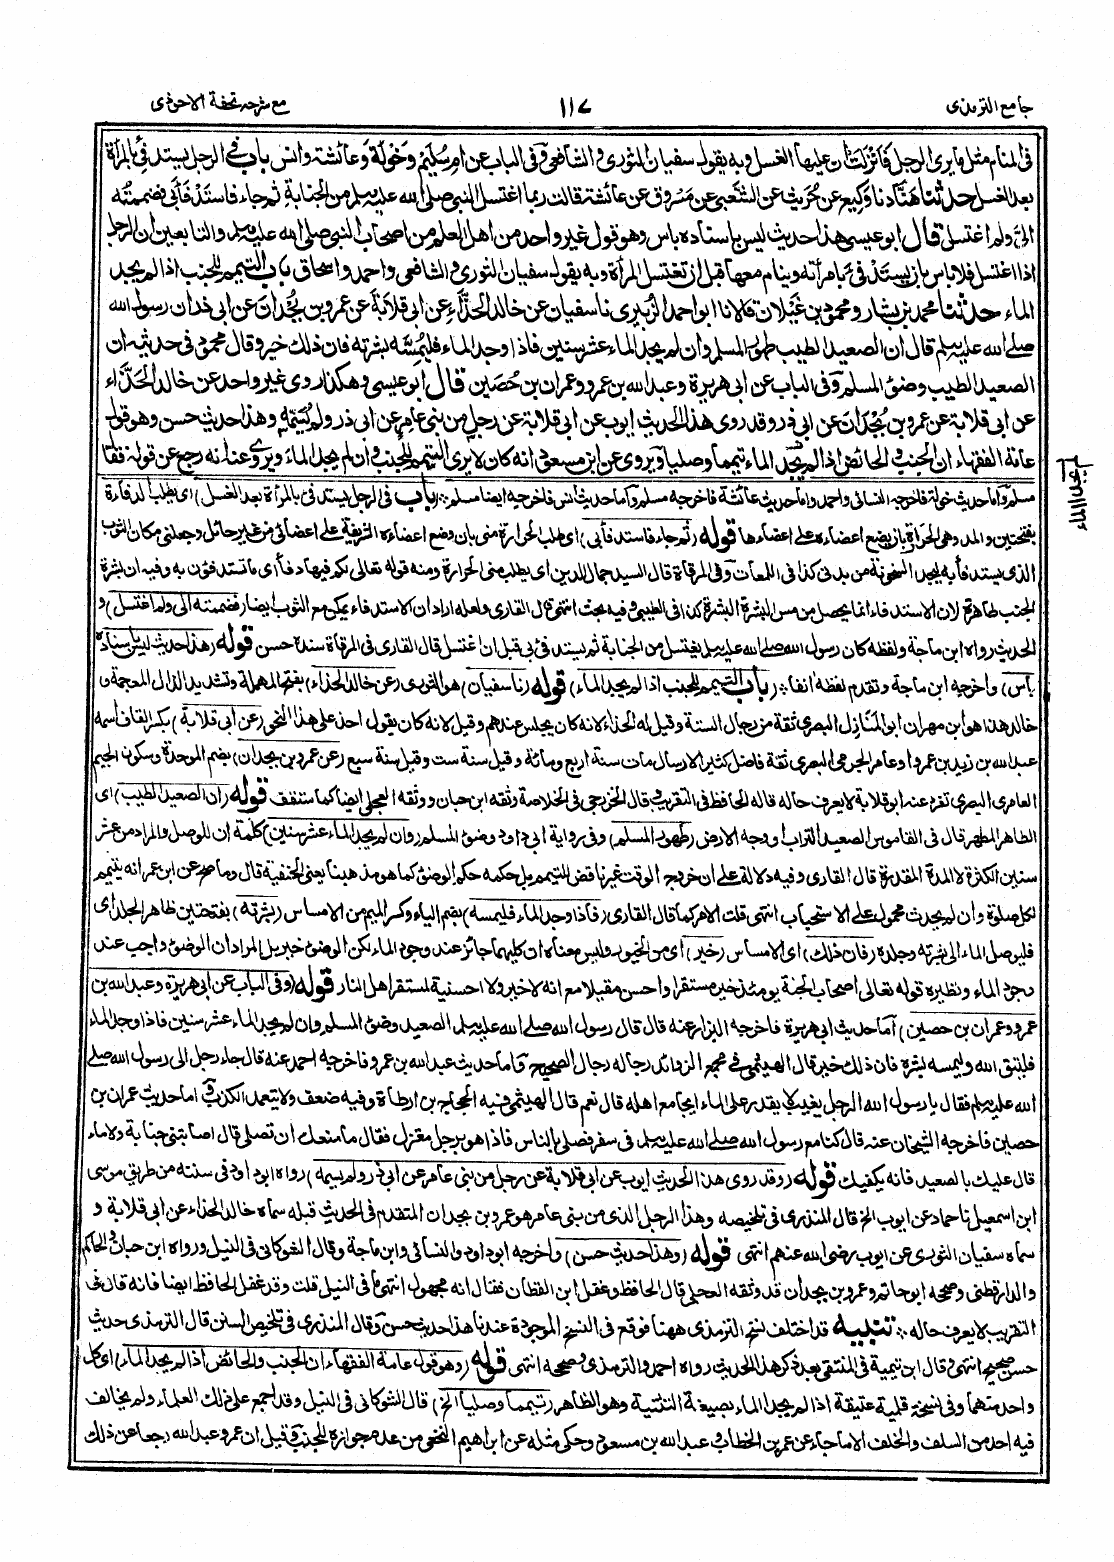 جامع الترمذی
١١٧
مع شرحه تحفة الاحوذی
فی المنام مثل ما یری الرجل فانزلت ان علیها الغسل وبه یقول سفیان الثوری والشافعی وفی الباب عن ام سلیم وخولة وعائشة وانس باب فی الرجل یستدفئ بالمرأة
بعد الغسل حدثنا هناد نا وکیع عن حریث عن الشعبی عن مسروق عن عائشة قالت ربما اغتسل النبی صلی الله علیه وسلم من الجنابة ثم جاء فاستدفأ بی فضممته
الیّ ولم اغتسل قال ابو عیسی هذا حدیث لیس باسناده باس وهو قول غیر واحد من اهل العلم من اصحاب النبی صلی الله علیه وسلم والتابعین ان الرجل
اذا اغتسل فلا باس بان یستدفئ بامرأته وینام معها قبل ان تغتسل المرأة وبه یقول سفیان الثوری والشافعی واحمد واسحاق باب التیمم للجنب اذا لم یجد
الماء حدثنا محمد بن بشار ومحمود بن غیلان قالا نا ابو احمد الزبیری نا سفیان عن خالد الحذاء عن ابی قلابة عن عمرو بن بجدان عن ابی ذر ان رسول الله
صلی الله علیه وسلم قال ان الصعید الطیب طهور المسلم وان لم یجد الماء عشر سنین فاذا وجد الماء فلیمسه بشرته فان ذلک خیر وقال محمود فی حدیثه ان
الصعید الطیب وضوء المسلم وفی الباب عن ابی هریرة وعبد الله بن عمرو وعمران بن حصین قال ابو عیسی وهکذا روی غیر واحد عن خالد الحذاء
عن ابی قلابة عن عمرو بن بجدان عن ابی ذر وقد روی هذا الحدیث ایوب عن ابی قلابة عن رجل من بنی عامر عن ابی ذر ولم یسمه وهذا حدیث حسن وهو قول
عامة الفقهاء ان الجنب والحائض اذا لم یجد الماء تیمما وصلیا ویروی عن ابن مسعود انه کان لا یری التیمم للجنب وان لم یجد الماء ویروی عنه انه رجع عن قوله فقال
مسلم واما حدیث خولة فاخرجه النسائی واحمد واما حدیث عائشة فاخرجه مسلم واما حدیث انس فاخرجه ایضا مسلم * (باب فی الرجل یستدفئ بالمرأة بعد الغسل) ای یطلب الدفاءة
بفتحتین والمد وهی الحرارة بان یضع اعضاءه علی اعضاءها قوله (ثم جاء فاستدفأ بی) ای طلب الحرارة منی بان وضع اعضاءه الشریفة علی اعضائی من غیر حائل وجعلنی مکان الثوب
الذی یستدفأ به لیجد السخونة من بدنی کذا فی اللمعات وفی المرقاة قال السید جمال الدین ای یطلب منی الحرارة ومنه قوله تعالی لکم فیها دفء ای ما تستدفئون به وفیه ان بشرة
الجنب طاهرة لان الاستدفاء انما یحصل من مس البشرة البشرة کذا فی الطیبی وفیه بحث انتهی قال القاری ولعله اراد ان الاستدفاء یمکن مع الثوب ایضا (فضممته الی ولم اغتسل) و
الحدیث رواه ابن ماجة ولفظه کان رسول الله صلی الله علیه وسلم یغتسل من الجنابة ثم یستدفئ بی قبل ان اغتسل قال القاری فی المرقاة سنده حسن قوله (هذا حدیث لیس باسناده
باس) واخرجه ابن ماجة وتقدم لفظه انفا * (باب التیمم للجنب اذا لم یجد الماء) قوله (نا سفیان) هو الثوری (عن خالد الحذاء) بفتح المهملة وتشدید الذال المعجمة و
خالد هذا هو ابن مهران ابو المنازل البصری ثقة من رجال الستة وقیل له الحذاء لانه کان یجلس عندهم وقیل لانه کان یقول احذ علی هذا النحو (عن ابی قلابة) بکسر القاف اسمه
عبد الله بن زید بن عمرو او عامر الجرمی البصری ثقة فاضل کثیر الارسال مات سنة اربع ومائة وقیل سنة ست وقیل سنة سبع (عن عمرو بن بجدان) بضم الموحدة وسکون الجیم
العامری البصری تفرد عنه ابو قلابة لا یعرف حاله قاله الحافظ فی التقریب وقال الخزرجی فی الخلاصة وثقه ابن حبان ووثقه العجلی ایضا کما ستقف قوله (ان الصعید الطیب) ای
الطاهر المطهر قال فی القاموس الصعید التراب او وجه الارض (طهور المسلم) وفی روایة ابی داود وضوء المسلم (وان لم یجد الماء عشر سنین) کلمة ان للوصل والمراد من عشر
سنین الکثرة لا المدة المقدرة قال القاری وفیه دلالة علی ان خروج الوقت غیر ناقض للتیمم بل حکمه حکم الوضوء کما هو مذهبنا یعنی الحنفیة قال وما صح عن ابن عمر انه یتیمم
لکل صلوة وان لم یحدث محمول علی الاستحباب انتهی قلت الامر کما قال القاری (فاذا وجد الماء فلیمسه) بضم الیاء وکسر المیم من الامساس (بشرته) بفتحتین ظاهر الجلد ای
فلیوصل الماء الی بشرته وجلده (فان ذلک) ای الامساس (خیر) ای من الخیور ولیس معناه ان کلیهما جائز عند وجود الماء لکن الوضوء خیر بل المراد ان الوضوء واجب عند
وجود الماء ونظیره قوله تعالی اصحاب الجنة یومئذ خیر مستقرا واحسن مقیلا مع انه لا خیر ولا احسنیة لمستقر اهل النار قوله (وفی الباب عن ابی هریرة وعبد الله بن
عمرو وعمران بن حصین) اما حدیث ابی هریرة فاخرجه البزار عنه قال قال رسول الله صلی الله علیه وسلم الصعید وضوء المسلم وان لم یجد الماء عشر سنین فاذا وجد الماء
فلیتق الله ولیمسه بشره فان ذلک خیر قال الهیثمی فی مجمع الزوائد رجاله رجال الصحیح واما حدیث عبد الله بن عمرو فاخرجه احمد عنه قال جاء رجل الی رسول الله صلی
الله علیه وسلم فقال یا رسول الله الرجل یغیب لا یقدر علی الماء ایجامع اهله قال نعم قال الهیثمی وفیه الحجاج بن ارطاة وفیه ضعف ولا یتعمد الکذب واما حدیث عمران بن
حصین فاخرجه الشیخان عنه قال کنا مع رسول الله صلی الله علیه وسلم فی سفر فصلی بالناس فاذا هو برجل معتزل فقال ما منعک ان تصلی قال اصابتنی جنابة ولا ماء
قال علیک بالصعید فانه یکفیک قوله (وقد روی هذا الحدیث ایوب عن ابی قلابة عن رجل من بنی عامر عن ابی ذر ولم یسمه) رواه ابو داود فی سننه من طریق موسی
ابن اسمعیل نا حماد عن ایوب الخ قال المنذری فی تلخیصه وهذا الرجل الذی من بنی عامر هو عمرو بن بجدان المتقدم فی الحدیث قبله سماه خالد الحذاء عن ابی قلابة و
سماه سفیان الثوری عن ایوب رضی الله عنهم انتهی قوله (وهذا حدیث حسن) واخرجه ابو داود والنسائی وابن ماجة وقال الشوکانی فی النیل ورواه ابن حبان والحاکم
والدارقطنی وصححه ابو حاتم وعمرو بن بجدان قد وثقه العجلی قال الحافظ وغفل ابن القطان فقال انه مجهول انتهی ما فی النیل قلت وقد غفل الحافظ ایضا فانه قال فی
التقریب لا یعرف حاله * تنبیه قد اختلف نسخ الترمذی ههنا فوقع فی النسخ الموجودة عندنا هذا حدیث حسن وقال المنذری فی تلخیص السنن قال الترمذی حدیث
حسن صحیح انتهی وقال ابن تیمیة فی المنتقی بعد ذکر هذا الحدیث رواه احمد والترمذی وصححه انتهی قوله (وهو قول عامة الفقهاء ان الجنب والحائض اذا لم یجد الماء) ای کل
واحد منهما وفی نسخة قلمیة عتیقة اذا لم یجدا الماء بصیغة التثنیة وهو الظاهر (تیمما وصلیا الخ) قال الشوکانی فی النیل وقد اجمع علی ذلک العلماء ولم یخالف
فیه احد من السلف والخلف الا ما جاء عن عمر بن الخطاب وعبد الله بن مسعود وحکی مثله عن ابراهیم النخعی من عدم جوازه للجنب وقیل ان عمر وعبد الله رجعا عن ذلک